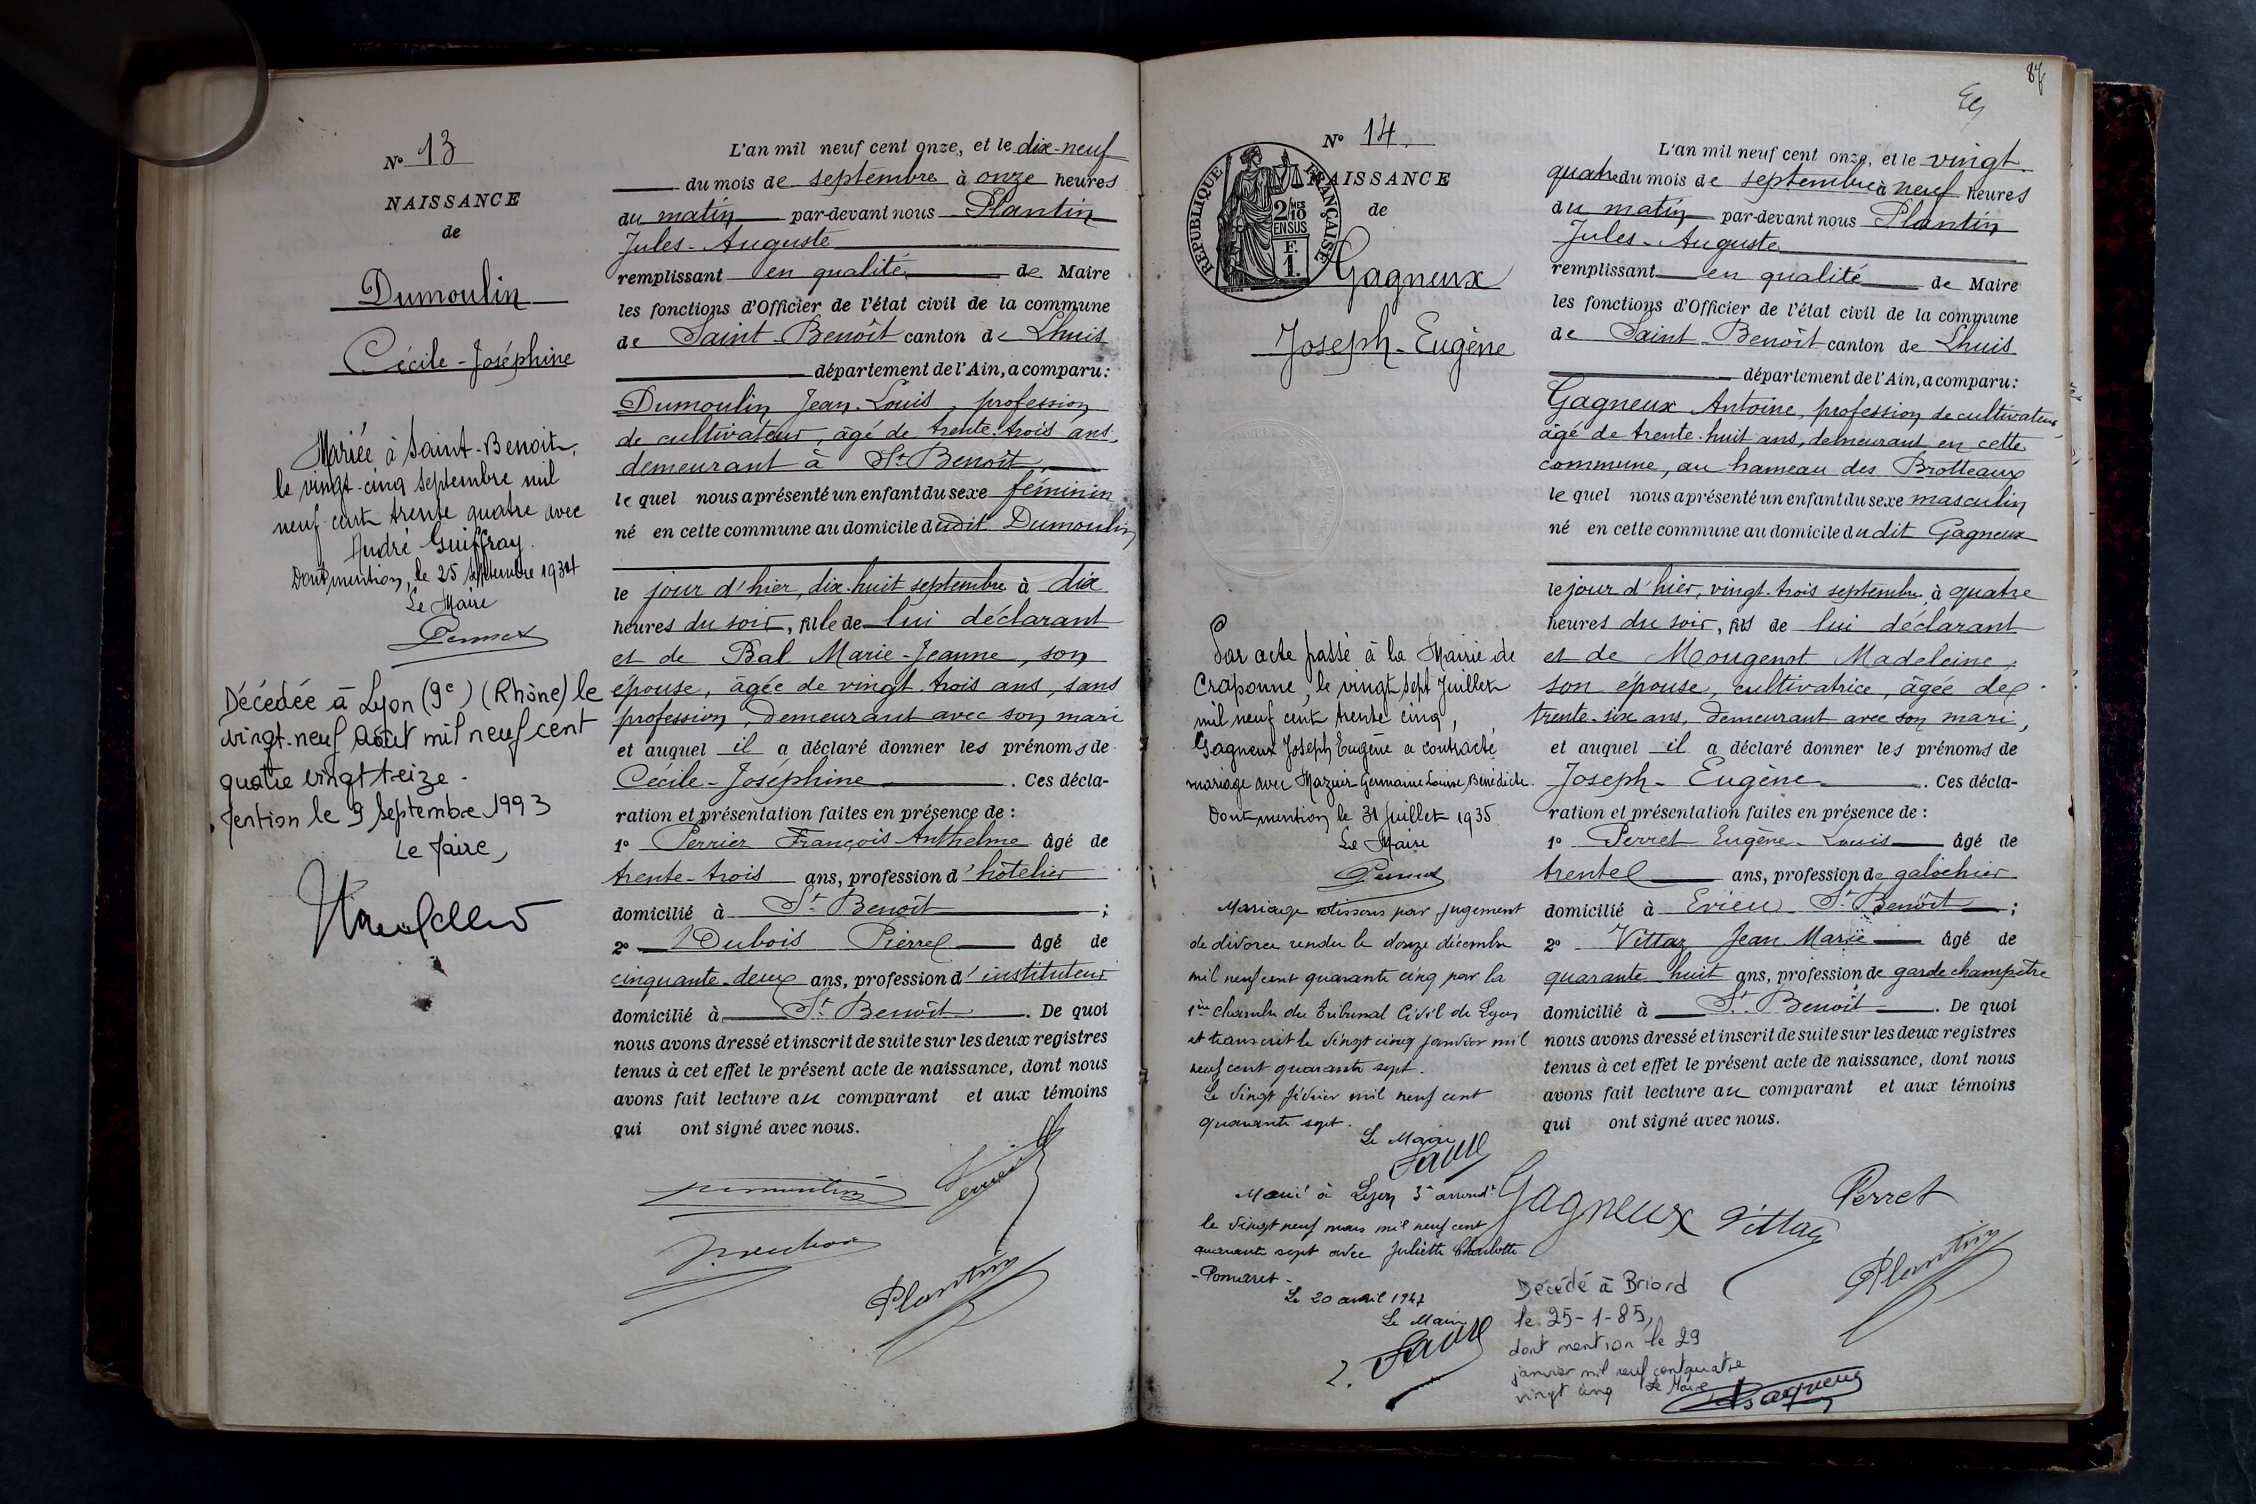 N° 13
NAISSANCE
de
Dumoulin
Cécile-Joséphine
Mariée à Saint-Benoit,
le vingt-cinq septembre mil
neuf cent trente quatre avec
André Guiffray.
Dont mention, le 25 septembre 1934
Le Maire
Décédée à Lyon (9e) (Rhône) le
vingt-neuf août mil neuf cent
quatre vingt treize.
Mention le 9 septembre 1993
Le Maire,
L'an mil neuf cent onze, et le dix-neuf
du mois de septembre à onze heures
du matin par-devant nous Plantin
Jules-Auguste
remplissant en qualité de Maire
les fonctions d'Officier de l'état civil de la commune
de Saint-Benoît canton de Lhuis
département de l'Ain, a comparu:
Dumoulin Jean-Louis, profession
de cultivateur, âgé de trente-trois ans,
demeurant à St Benoît,
le quel nous a présenté un enfant du sexe féminin
né en cette commune au domicile dudit Dumoulin
le jour d'hier, dix-huit septembre à dix
heures du soir, fille de lui déclarant
et de Bal Marie-Jeanne, son
épouse, âgée de vingt-trois ans, sans
profession, demeurant avec son mari
et auquel il a déclaré donner les prénoms de
Cécile-Joséphine. Ces décla-
ration et présentation faites en présence de:
1° Perrier François Anthelme âgé de
trente-trois ans, profession d'hôtelier
domicilié à St Benoît;
2° Dubois Pierre âgé de
cinquante-deux ans, profession d'instituteur
domicilié à St Benoît. De quoi
nous avons dressé et inscrit de suite sur les deux registres
tenus à cet effet le présent acte de naissance, dont nous
avons fait lecture au comparant et aux témoins
qui ont signé avec nous.
Dumoulin
Plantin
87
N° 14.
NAISSANCE
de
RÉPUBLIQUE FRANÇAISE
2/10 MES
EN SUS
F.
1.
Gagneux
Joseph-Eugène
Par acte passé à la Mairie de
Craponne, le vingt sept Juillet
mil neuf cent trente cinq,
Gagneux Joseph Eugène a contracté
mariage avec Mazuir Germaine Louise Bénédicte.
Dont mention le 31 Juillet 1935
Le Maire
Mariage dissous par jugement
de divorce rendu le douze décembre
mil neuf cent quarante cinq par la
1ère chambre du Tribunal Civil de Lyon
et transcrit le vingt cinq janvier mil
neuf cent quarante sept.
Le vingt février mil neuf cent
quarante sept.
Le Maire
Faure
Marié à Lyon 3e arrondt
le vingt neuf mars mil neuf cent
quarante sept avec Juliette Charlotte
-Pomaret-
Le 20 avril 1947
Le Maire
Faure
L'an mil neuf cent onze, et le vingt-
quatre du mois de septembre à neuf heures
du matin par-devant nous Plantin
Jules-Auguste
remplissant en qualité de Maire
les fonctions d'Officier de l'état civil de la commune
de Saint-Benoît canton de Lhuis
département de l'Ain, a comparu:
Gagneux Antoine, profession de cultivateur,
âgé de trente-huit ans, demeurant en cette
commune, au hameau des Brotteaux
le quel nous a présenté un enfant du sexe masculin
né en cette commune au domicile dudit Gagneux
le jour d'hier, vingt-trois septembre, à quatre
heures du soir, fils de lui déclarant
et de Mougenot Madeleine,
son épouse, cultivatrice, âgée de
trente-six ans, demeurant avec son mari,
et auquel il a déclaré donner les prénoms de
Joseph-Eugène. Ces décla-
ration et présentation faites en présence de:
1° Perret Eugène-Louis âgé de
trente ans, profession de galochier
domicilié à Evieu St Benoît;
2° Vittaz Jean Marie âgé de
quarante-huit ans, profession de garde champêtre
domicilié à St Benoît. De quoi
nous avons dressé et inscrit de suite sur les deux registres
tenus à cet effet le présent acte de naissance, dont nous
avons fait lecture au comparant et aux témoins
qui ont signé avec nous.
Gagneux Vittaz Perret
Plantin
Décédé à Briord
le 25-1-85,
dont mention le 29
janvier mil neuf cent quatre
vingt cinq Le Maire,